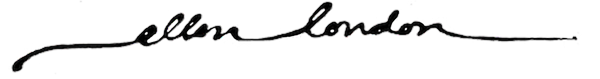 ellen london